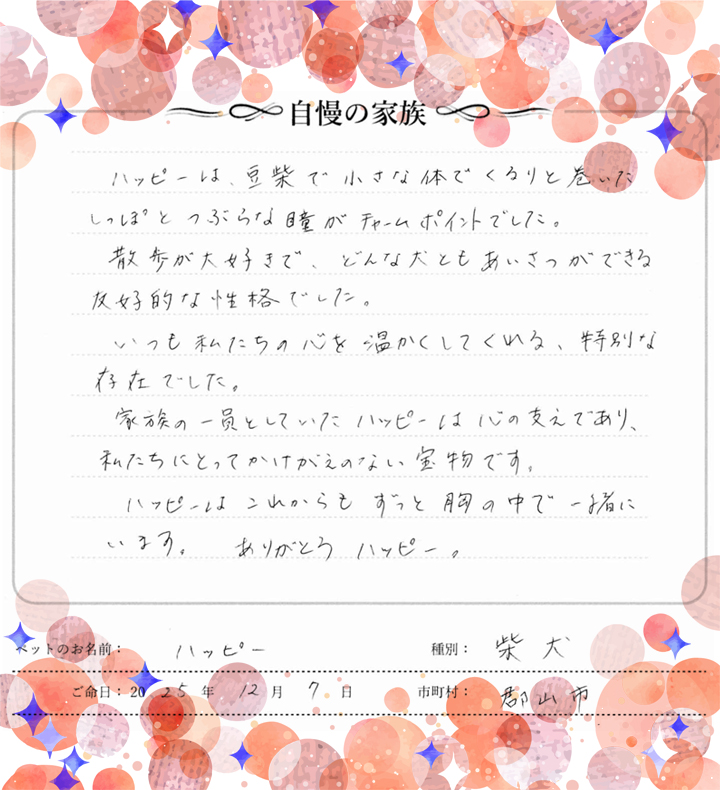 自慢の家族
ハッピーは、豆柴で小さな体でくるりと巻いた
しっぽとつぶらな瞳がチャームポイントでした。
散歩が大好きで、どんな犬ともあいさつができる
友好的な性格でした。
いつも私たちの心を温かくしてくれる、特別な
存在でした。
家族の一員としていたハッピーは心の支えであり、
私たちにとってかけがえのない宝物です。
ハッピーはこれからもずっと胸の中で一緒に
います。 ありがとう ハッピー。
ペットのお名前： ハッピー 種別： 柴犬
ご命日： 2025年 12月 7日 市町村： 郡山市